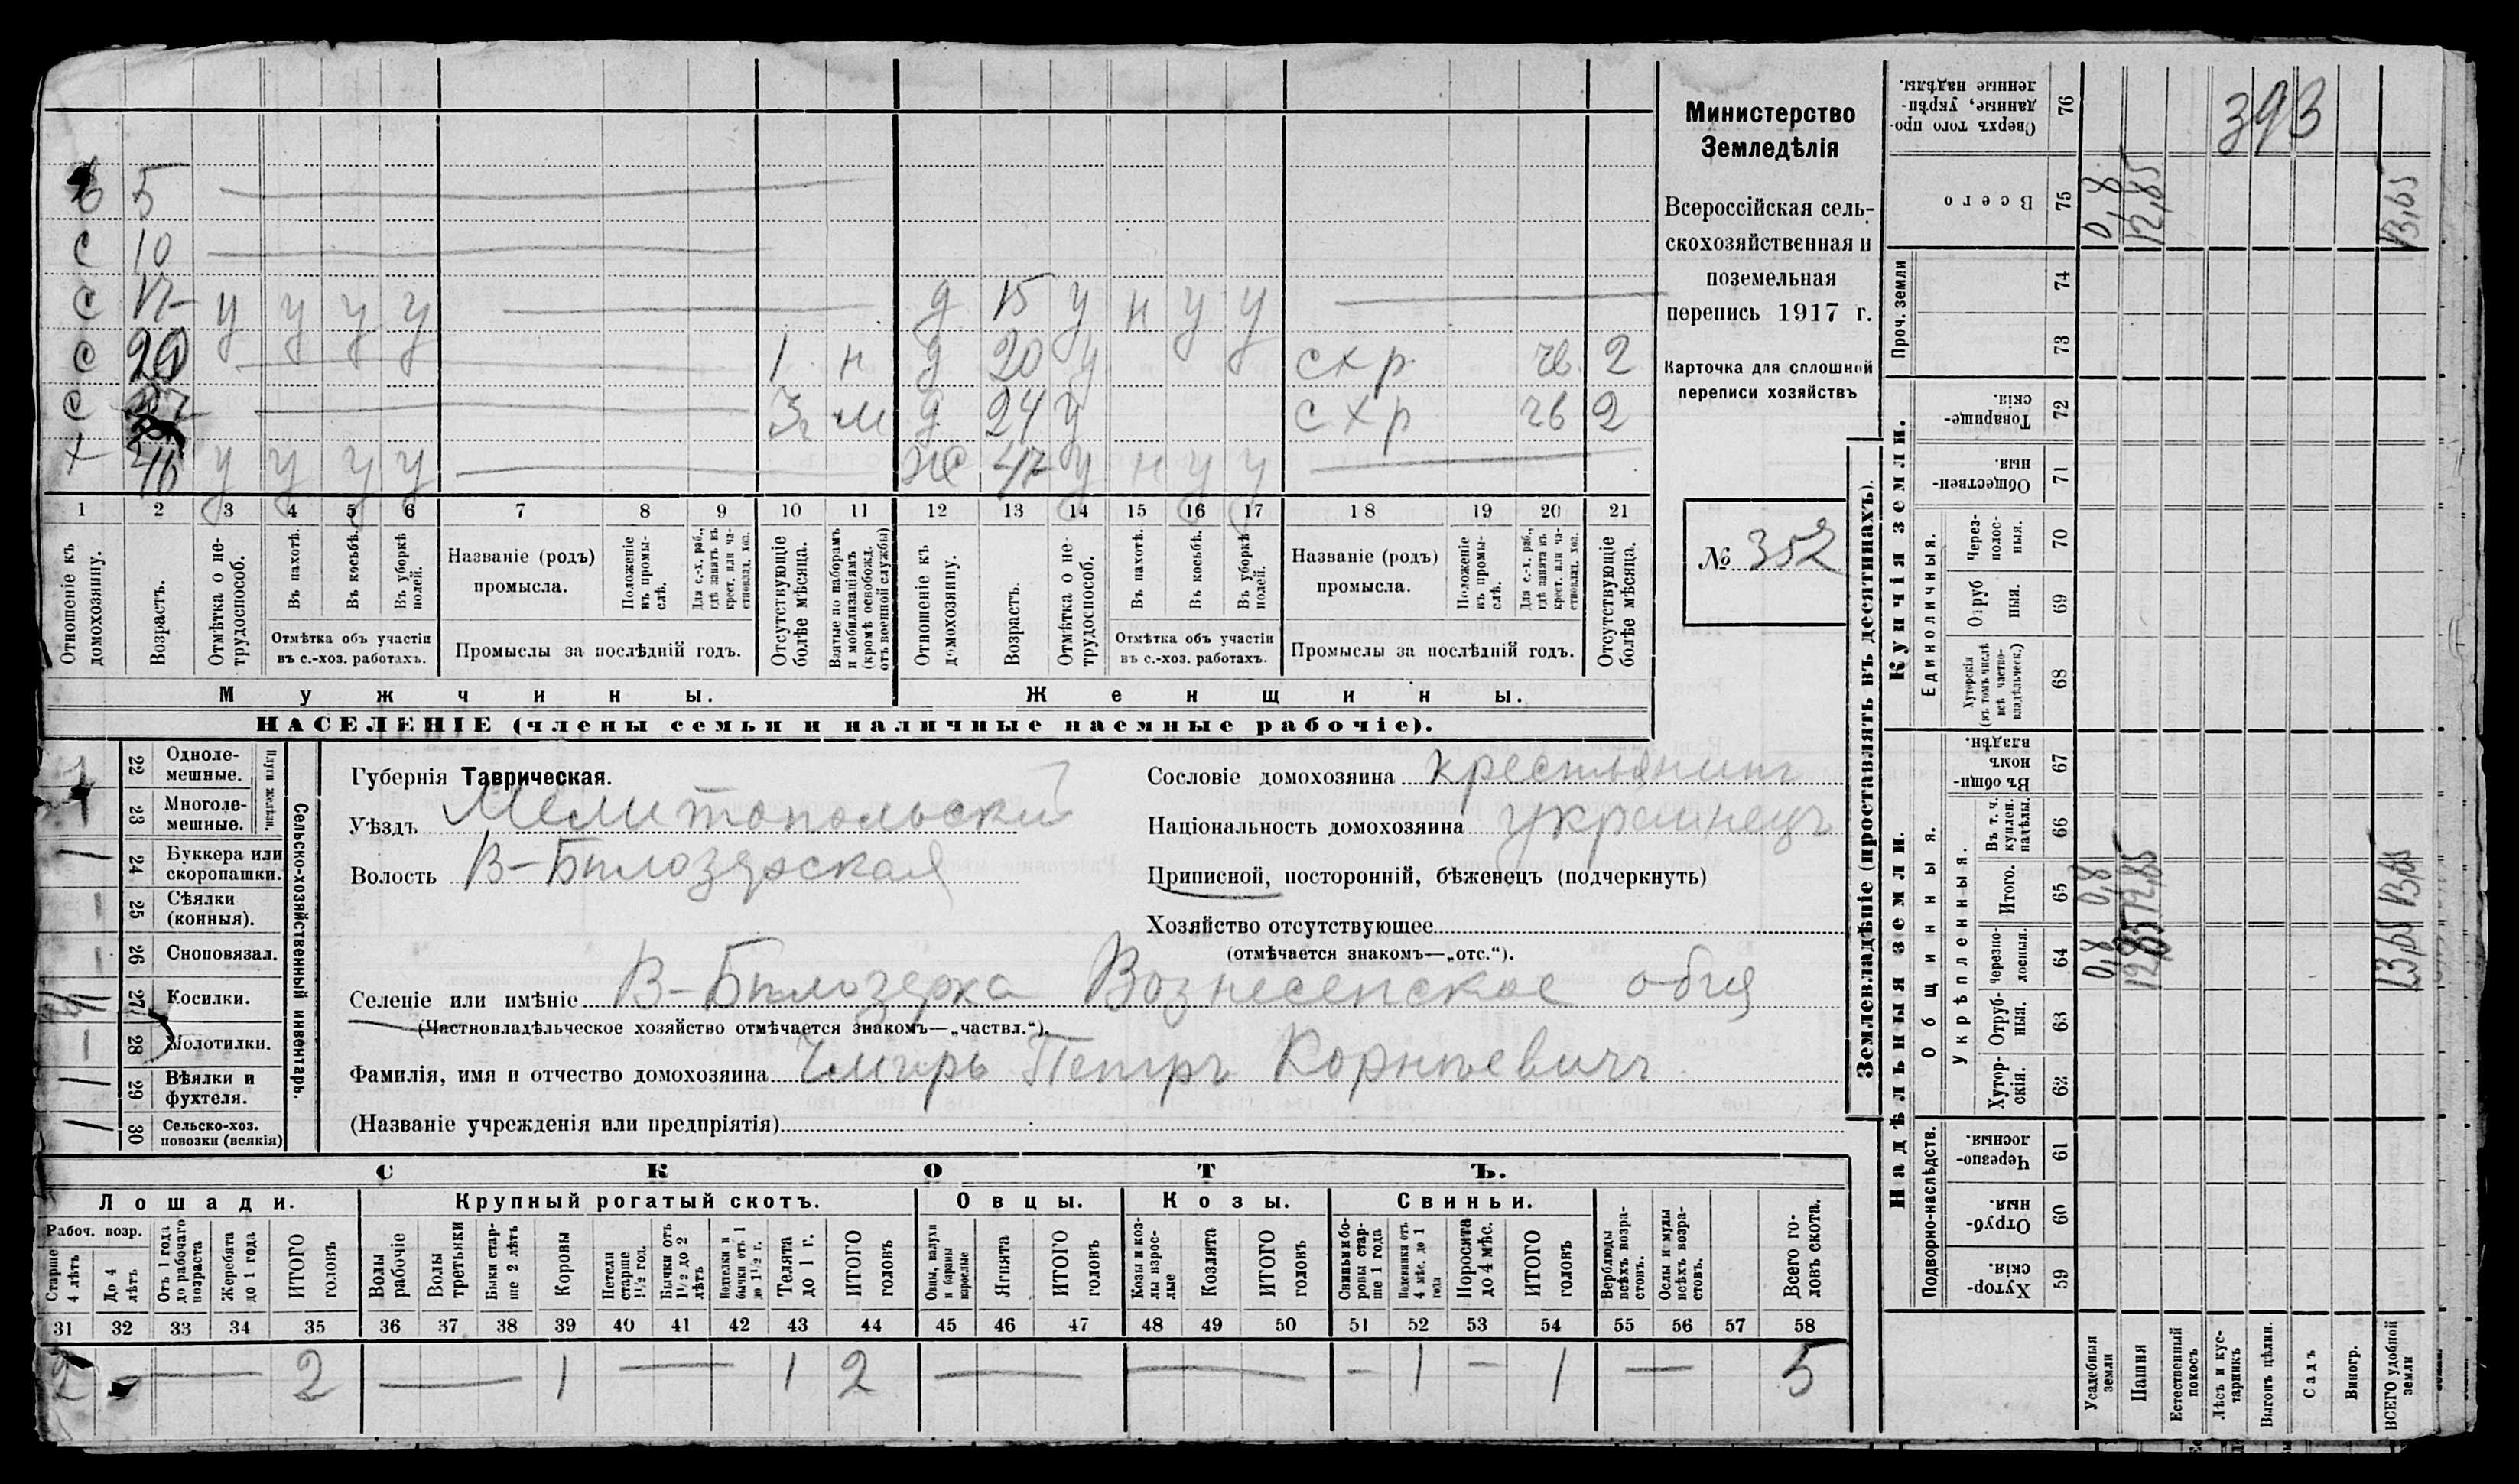 393
Министерство
Земледѣлія
Всероссійская сель-
скохозяйственная и
поземельная
перепись 1917 г.
Карточка для сплошной
переписи хозяйствъ
№ 352
5
С 10
С 17 у у у у д 15 у н у у
С 20 1 н д 20 у схр чв 2
С м д 24 у схр чв 2
х 46 у у у у же 47 у н у у
1 2 3 4 5 6 7 8 9 10 11 12 13 14 15 16 17 18 19 20 21
Отношеніе къ домохозяину.
Возрастъ.
Отмѣтка о не-трудоспособ.
Въ пахотѣ.
Въ косьбѣ.
Въ уборкѣ полей.
Отмѣтка объ участіи
въ с.-хоз. работахъ.
Названіе (родъ)
промысла.
Положеніе въ промы-слѣ.
Для с.-х. раб., гдѣ занятъ въ крест. или ча-стновлад. хоз.
Промыслы за послѣдній годъ.
Отсутствующіе болѣе мѣсяца.
Взятые по наборамъ и мобилизаціямъ (кромѣ освобожд. отъ военной службы)
Отношеніе къ домохозяину.
Возрастъ.
Отмѣтка о не-трудоспособ.
Въ пахотѣ.
Въ косьбѣ.
Въ уборкѣ полей.
Отмѣтка объ участіи
въ с.-хоз. работахъ.
Названіе (родъ)
промысла.
Положеніе въ промы-слѣ.
Для с.-х. раб., гдѣ занята въ крест. или ча-стновлад. хоз.
Промыслы за послѣдній годъ.
Отсутствующіе болѣе мѣсяца.
Мужчины. Женщины.
НАСЕЛЕНІЕ (члены семьи и наличные наемные рабочіе).
22 Одноле-мешные.
23 Многоле-мешные.
Плуги желѣзн.
24 Буккера или скоропашки.
25 Сѣялки (конныя).
26 Сноповязал.
27 Косилки.
28 Молотилки.
29 Вѣялки и фухтеля.
30 Сельско-хоз. повозки (всякія)
Сельско-хозяйственный инвентарь.
Губернія Таврическая.
Уѣздъ Мелитопольский
Волость В-Бѣлозерская
Сословіе домохозяина крестьянинъ
Національность домохозяина украинецъ
Приписной, посторонній, бѣженецъ (подчеркнуть)
Хозяйство отсутствующее
(отмѣчается знакомъ—„отс.“).
Селеніе или имѣніе В-Бѣлозерка Вознесенское
(Частновладѣльческое хозяйство отмѣчается знакомъ—„частвл.“).
Фамилія, имя и отчество домохозяина Чмырь Петръ Корнѣевичъ
(Названіе учрежденія или предпріятія)
СКОТЪ.
Лошади. Крупный рогатый скотъ. Овцы. Козы. Свиньи.
Рабоч. возр.
Старше 4 лѣтъ
До 4 лѣтъ
Отъ 1 года до рабочаго возраста
Жеребята до 1 года
ИТОГО головъ
Волы рабочіе
Волы третьяки
Быки стар-ше 2 лѣтъ
Коровы
Нетели старше 1½ год.
Бычки отъ 1½ до 2 лѣтъ
Нетелки и бычки отъ 1 до 1½ г.
Телята до 1 г.
ИТОГО головъ
Овцы, валухи и бараны взрослые
Ягнята
ИТОГО головъ
Козы и коз-лы взрос-лые
Козлята
ИТОГО головъ
Свиньи и бо-ровы стар-ше 1 года
Подсвинки отъ 4 мѣс. до 1 года
Поросята до 4 мѣс.
ИТОГО головъ
Верблюды всѣхъ возра-стовъ.
Ослы и мулы всѣхъ возра-стовъ.
Всего го-ловъ скота.
31 32 33 34 35 36 37 38 39 40 41 42 43 44 45 46 47 48 49 50 51 52 53 54 55 56 57 58
2 2 1 1 2 1 1 5
Землевладѣніе (проставлять въ десятинахъ).
Купчія земли.
Надѣльныя земли.
Сверхъ того про-данные, укрѣп-ленные надѣлы. 76
Всего 75 0,8 12,85 13,65
Проч. земли 74
73
Товарище-скія. 72
Обществен-ныя. 71
Единоличныя.
Через-полос-ныя. 70
Отруб ныя. 69
Хуторскія (въ томъ числѣ всѣ частно-владѣльческ.) 68
Общинныя.
Въ общи-номъ владѣн. 67
Укрѣпленныя.
Въ т. ч. куплен. надѣлы. 66
Итого. 65 0,8 12,85 13,65
Черезпо-лосныя. 64 0,8 12,85 13,65
Отруб-ныя. 63
Хутор-скія. 62
Подворно-наслѣдств.
Черезпо-лосныя. 61
Отруб-ныя. 60
Хутор-скія. 59
Усадебныя земли
Пашня
Естественный покосъ
Лѣсъ и кус-тарникъ
Выгонъ цѣлин.
Садъ
Виногр.
ВСЕГО удобной земли